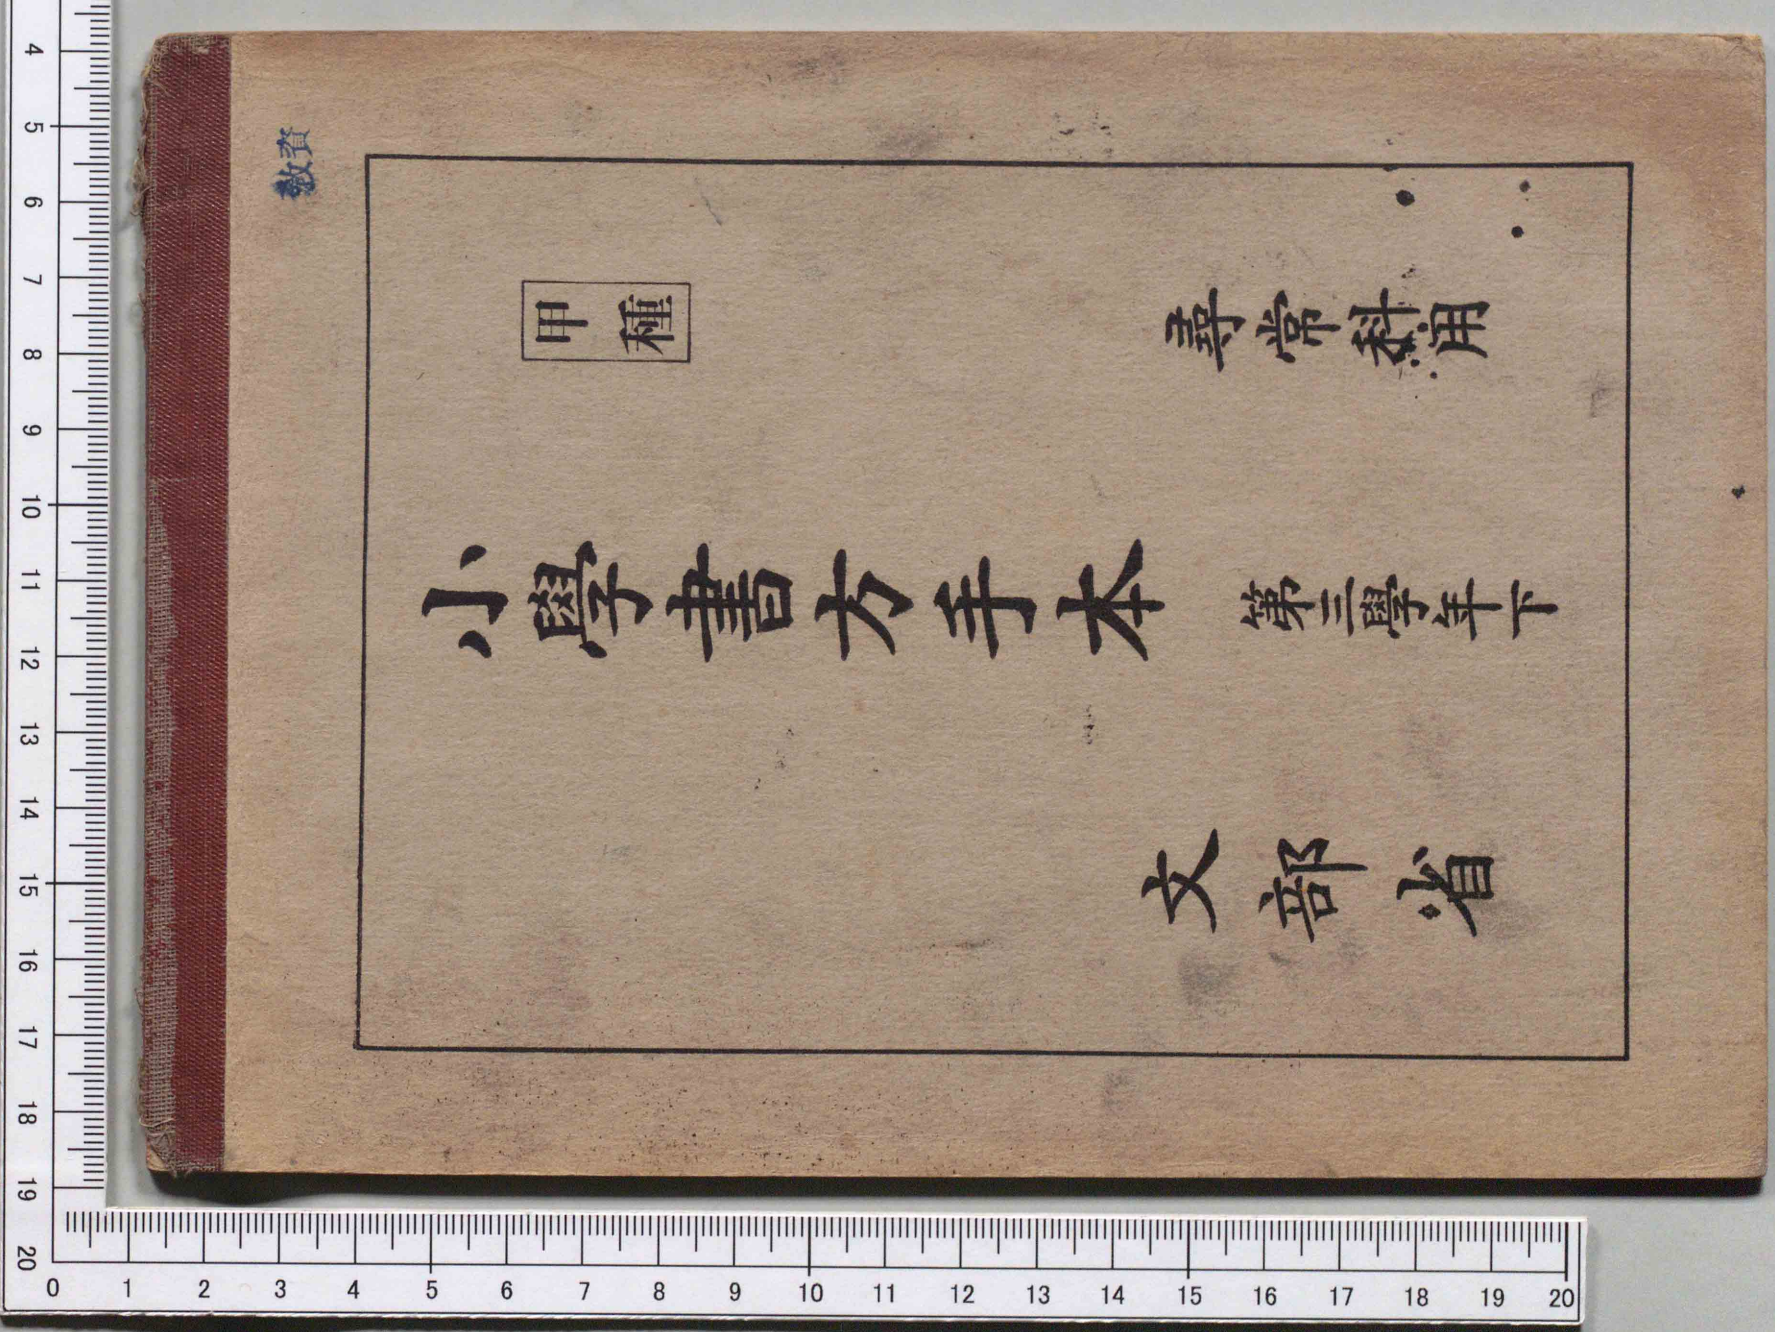 教資
甲種
尋常科用
小學書方手本 第三學年下
文部省
4 5 6 7 8 9 10 11 12 13 14 15 16 17 18 19 20
0 1 2 3 4 5 6 7 8 9 10 11 12 13 14 15 16 17 18 19 20